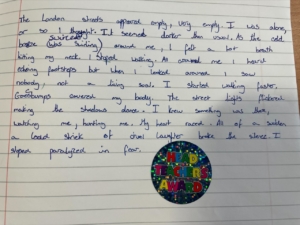 The London streets appeared empty, very empty. I was alone,
or so I thought. It seemed darker than usual. As the cold
swirled
breeze (was swirling) around me, I felt a hot breath
hitting my neck. I stopped walking. As around me I heard
echoing footsteps but when I looked around I saw
nobody, not a living soul. I started walking faster,
Goosebumps covered my body. The street lights flickered
making the shadows dance. I knew something was there
watching me, hunting me. My heart raced. All of a sudden
a loud shriek of cruel laughter broke the silence. I
stopped paralyzed in fear.
HEAD
TEACHERS
AWARD